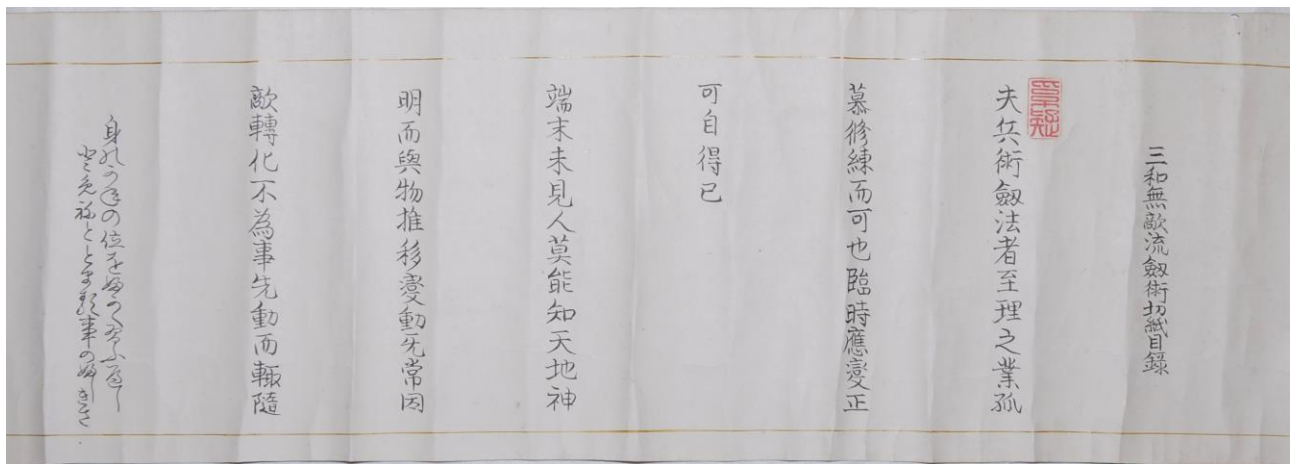 三和無敵流劔術切紙目錄
夫兵術劔法者至理之業孤
慕修練而可也臨時應變正
可自得已
端末未見人莫能知天地神
明而與物推移變動无常因
敵轉化不為事先動而輙隨
身の位をふかくふへし
とゝ事のふしきさ